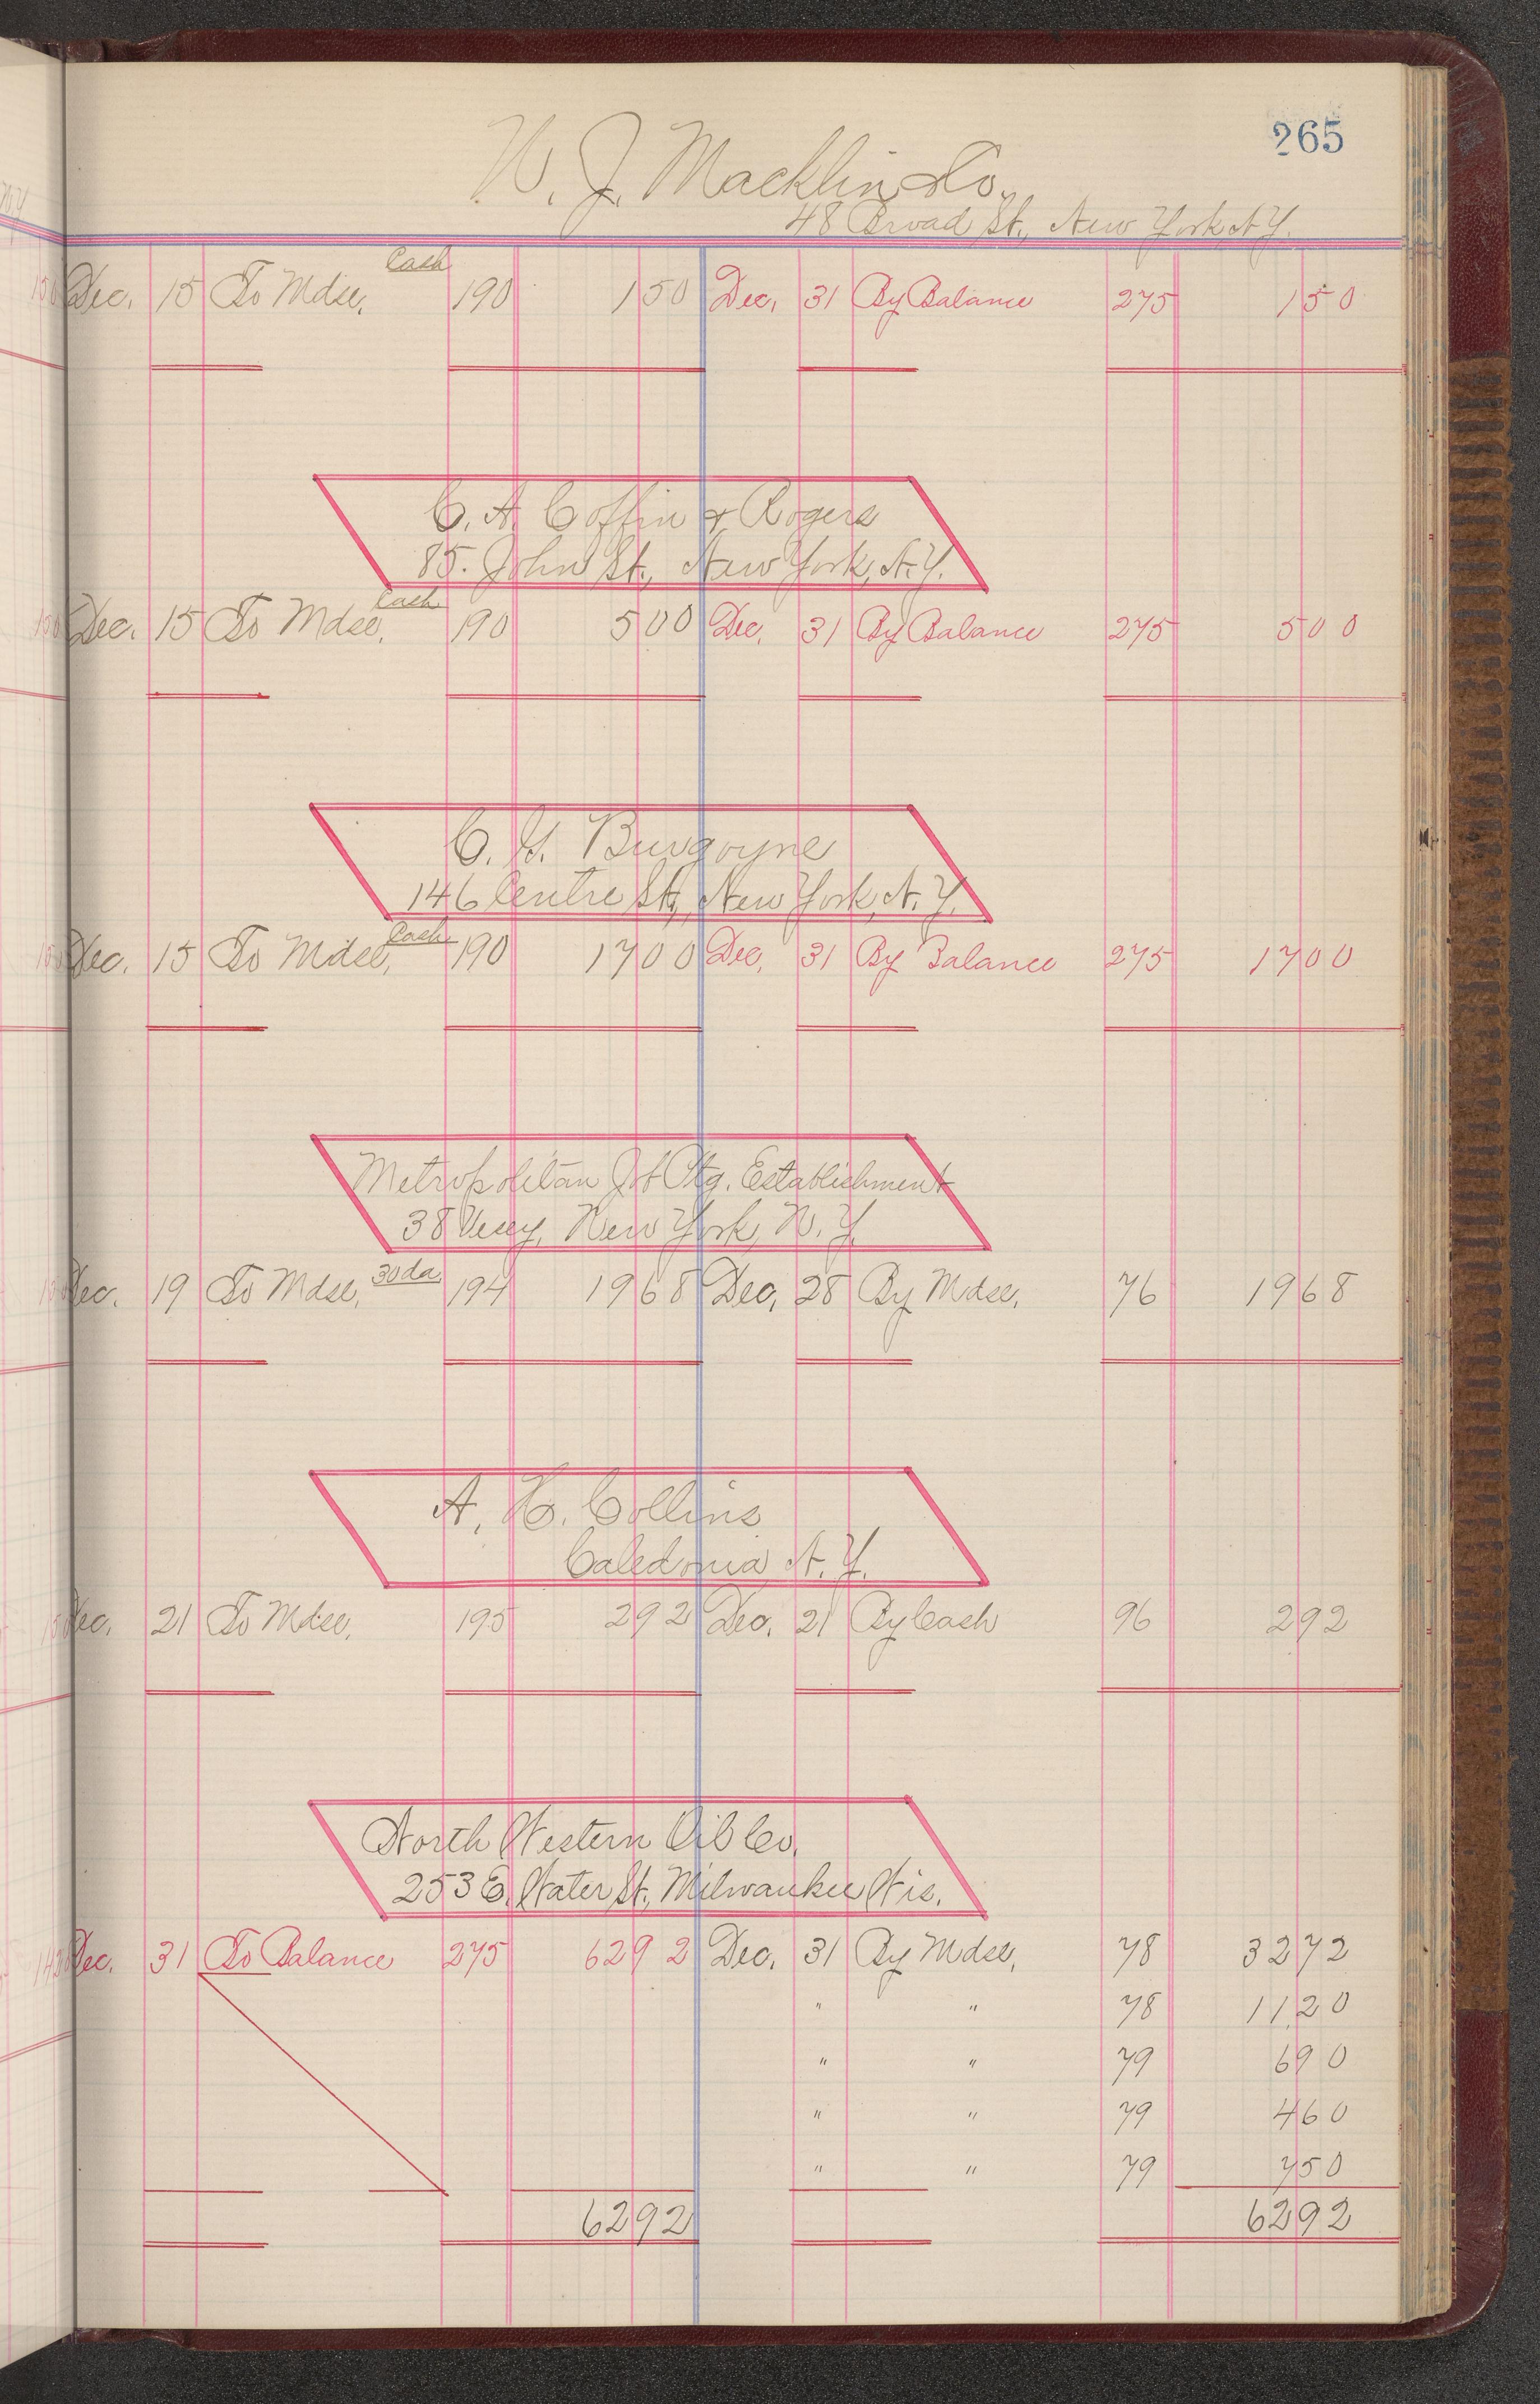 265
W. J. Macklin & Co.
48 Broad St., New York N.Y.
Cash
Dec. 15 To Mdse, 190 150 Dec, 31 By Balance 275 150
C. A. Coffin & Rogers
85. John St., New York, N.Y.
Cash
Dec. 15 To Mdse, 190 500 Dec, 31 By Balance 275 500
C. G. Burgoyne
146 Centre St., New York, N.Y.
Cash
Dec. 15 To Mdse, 190 1700 Dec, 31 By Balance 275 1700
Metropolitan Job Ptg. Establishment
38 Vesey, New York, N.Y.
30 da
Dec. 19 To Mdse, 194 1968 Dec, 28 By Mdse, 76 1968
A. H. Collins
Caledonia N.Y.
Dec. 21 To Mdse, 195 292 Dec, 21 By Cash 96 292
North Western Oil Co.
253 E. Water St., Milwaukee Wis.
Dec. 31 To Balance 275 6292 Dec. 31 By Mdse, 78 3272
" " 78 1120
" " 79 690
" " 79 460
" " 79 750
6292 6292